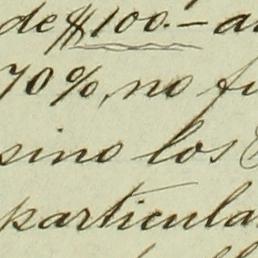 de $100.- a
70%, no fu
sino los
particula